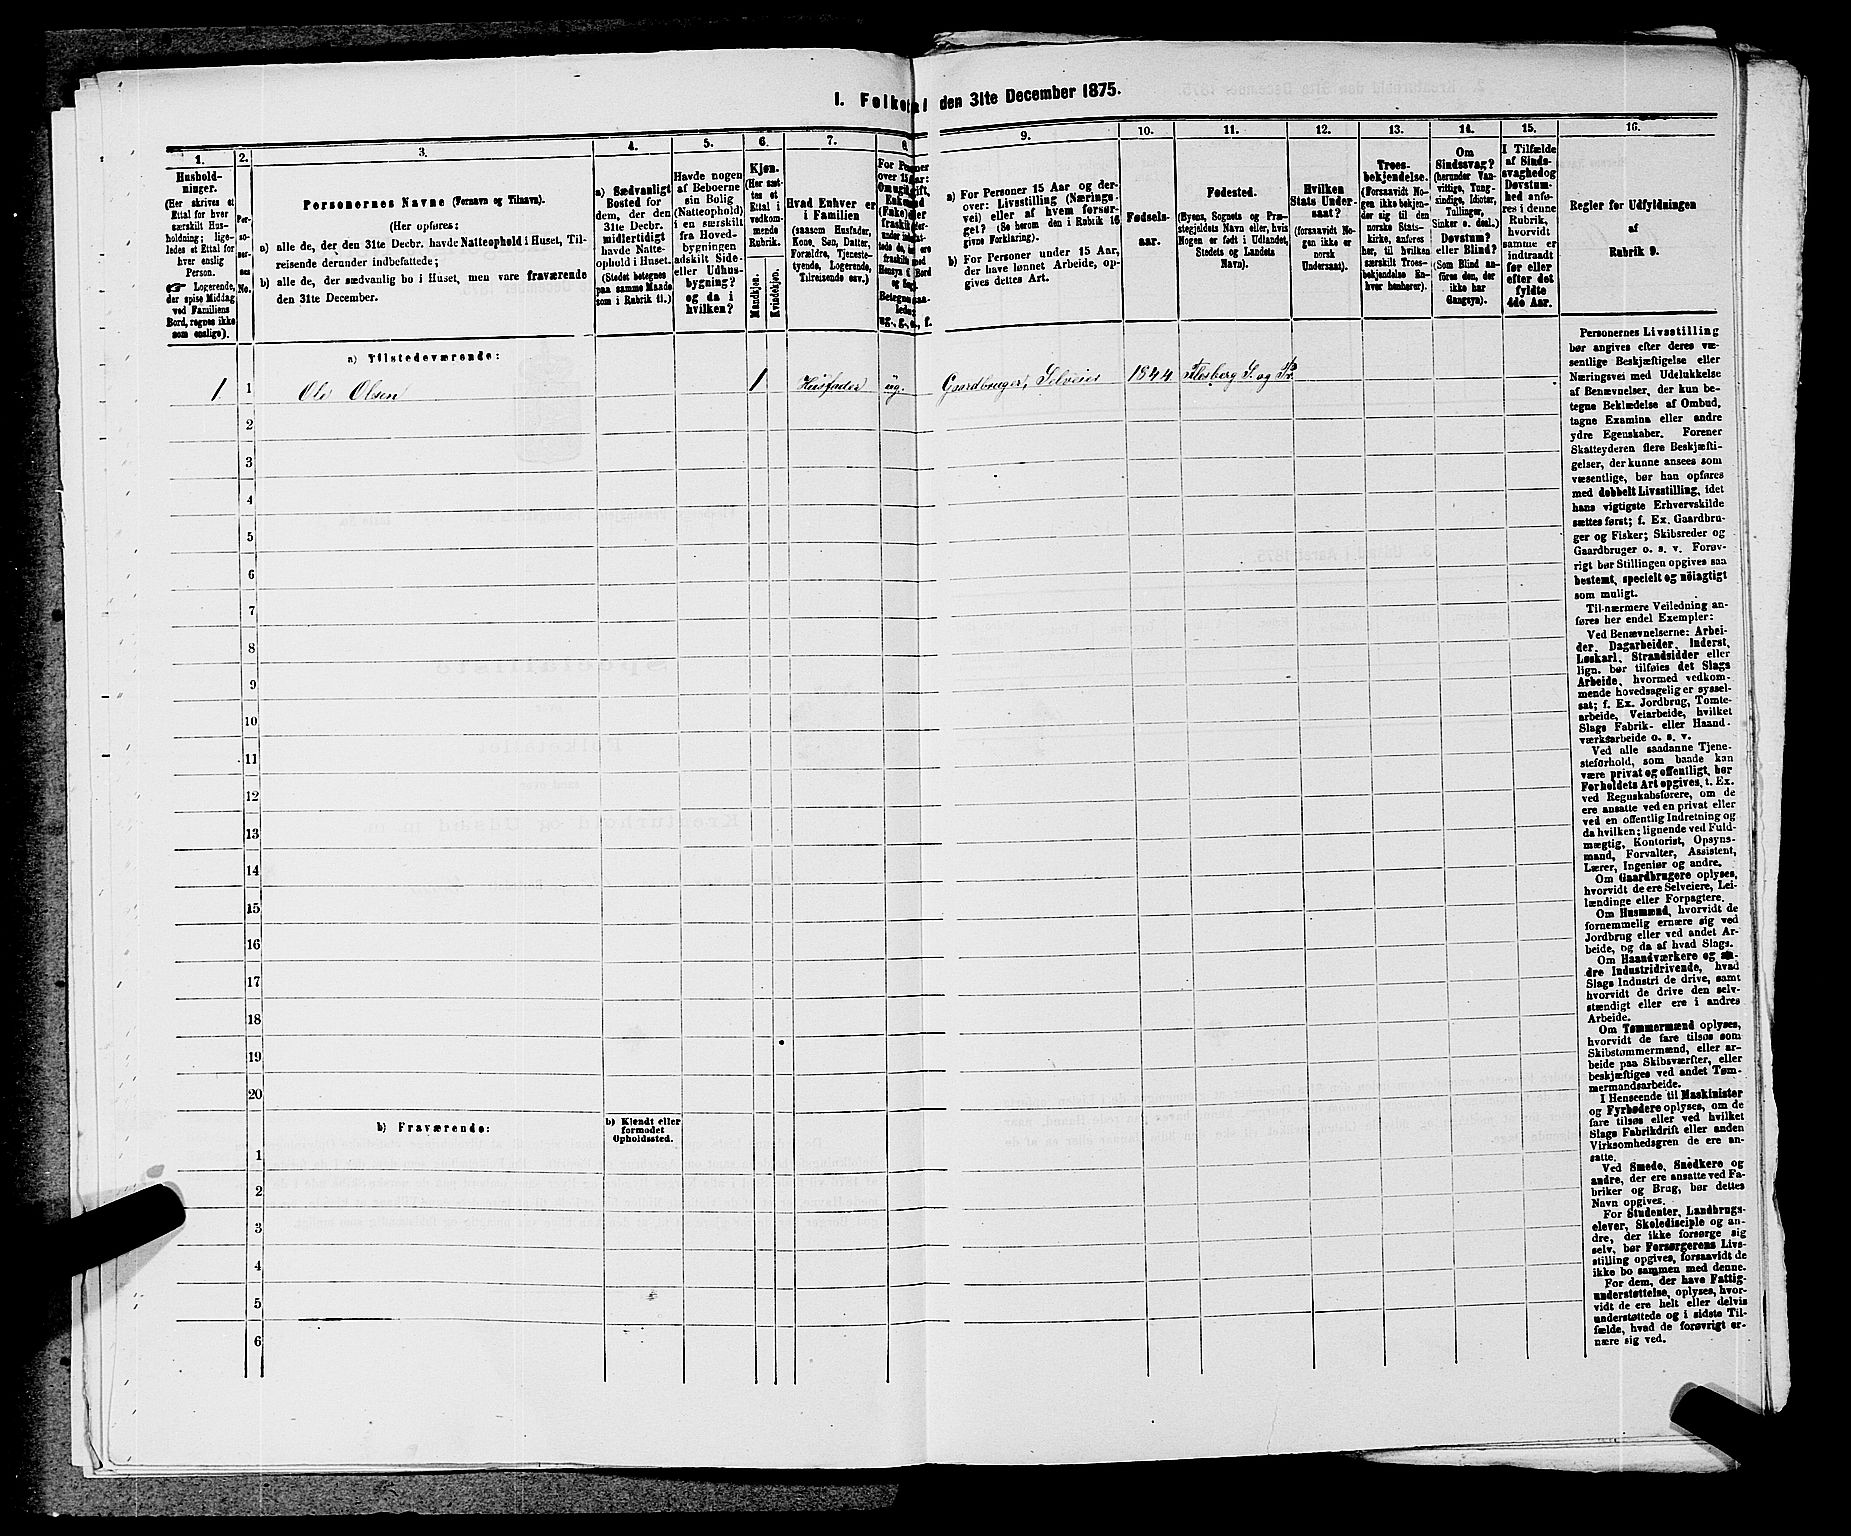 I. Folketal den 31te December 1875.
1.
Hushold-
ninger.
(Her skrives et
Ettal for hver
særskilt Hus-
holdning; lige-
ledes et Ettal for
hver enslig
Person.
☛ Logerende,
der spise Middag
ved Familiens
Bord, regnes ikke
som enslige).
2.
Per-
so-
ner-
nes
No.
3.
Personernes Navne (Fornavn og Tilnavn).
(Her opføres:
a) alle de, der den 31te Decbr. havde Natteophold i Huset, Til-
reisende derunder indbefattede;
b) alle de, der sædvanlig bo i Huset, men vare fraværende
den 31te December.
4.
a) Sædvanligt
Bosted for
dem, der den
31te Decbr.
midlertidigt
havde Natte-
ophold i Huset.
(Stedet betegnes
paa samme Maade
som i Rubrik 11.)
5.
Havde nogen
af Beboerne
sin Bolig
(Natteophold)
i en særskilt
fra Hoved-
bygningen
adskilt Side-
eller Udhus-
bygning?
og da i
hvilken?
6.
Kjøn.
(Her sæt-
tes et
Ettal i
vedkom-
mende
Rubrik.
Mandkjøn.
Kvindekjøn.
7.
Hvad Enhver er
i Familien
(saasom Husfader,
Kone, Søn, Datter,
Forældre, Tjeneste-
tyende, Logerende,
Tilreisende osv.)
8.
9.
a) For Personer 15 Aar og der-
over: Livsstilling (Nærings-
vei) eller af hvem forsør-
get? (Se herom den i Rubrik 16
givne Forklaring).
b) For Personer under 15 Aar,
der have lønnet Arbeide, op-
gives dettes Art.
10.
Fødsels-
aar.
11.
Fødested.
(Byens, Sognets og Præ-
stegjeldets Navn eller, hvis
Nogen er født i Udlandet,
Stedets og Landets
Navn).
12.
Hvilken
Stats Under-
saat?
(forsaavidt No-
gen ikke er
norsk
Undersaat).
13.
Troes-
bekjendelse.
(Forsaavidt No-
gen ikke bekjen-
der sig til den
norske Stats-
kirke, anføres
her, til hvilken
særskilt Troes-
bekjendelse En-
hver henhører).
14.
Om
Sindssvag?
(herunder Van-
vittige, Tung-
sindige, Idioter,
Tullinger,
Sinker o. desl.)
Døvstum?
eller Blind?
(Som Blind an-
føres den, der
ikke har
Gangsyn).
15.
I Tilfælde
af Sinds-
svaghed og
Døvstum-
hed anfø-
res i denne
Rubrik,
hvorvidt
samme er
indtraadt
før eller
efter det
fyldte
4de Aar.
16.
Regler for Udfyldningen
af
Rubrik 9.
a) Tilstedeværende:
1 1 Ole Olsen 1 Husfader ug. Gaardbruger, Selveier 1844 Flesberg S. og Pr.
2
3
4
5
6
7
8
9
10
11
12
13
14
15
16
17
18
19
20
b) Fraværende:
b) Kjendt eller
formodet
Opholdssted.
1
2
3
4
5
6
Personernes Livsstilling
bør angives efter deres væ-
sentlige Beskjæftigelse eller
Næringsvei med Udelukkelse
af Benævnelser, der kun be-
tegne Beklædelse af Ombud,
tagne Examina eller andre
ydre Egenskaber. Forener
Skatteyderen flere Beskjæfti-
gelser, der kunne ansees som
væsentlige, bør han opføres
med dobbelt Livsstilling, idet
hans vigtigste Erhvervskilde
sættes først; f. Ex. Gaardbru-
ger og Fisker; Skibsreder og
Gaardbruger o. s. v. Forøv-
rigt bør Stillingen opgives saa
bestemt, specielt og nöiagtigt
som muligt.
Til nærmere Veiledning an-
føres her endel Exempler:
Ved Benævnelserne: Arbei-
der, Dagarbeider, Inderst,
Løskarl, Strandsidder eller
lign. bør tilføies det Slags
Arbeide, hvormed vedkom-
mende hovedsagelig er syssel-
sat; f. Ex. Jordbrug, Tomte-
arbeide, Veiarbeide, hvilket
Slags Fabrik- eller Haand-
værksarbeide o. s. v.
Ved alle saadanne Tjene-
steforhold, som baade kan
være privat og offentligt, bør
Forholdets Art opgives, t. Ex.
ved Regnskabsførere, om de
ere ansatte ved en privat eller
ved en offentlig Indretning og
da hvilken; lignende ved Fuld-
mægtig, Kontorist, Opsyns-
mand, Forvalter, Assistent,
Lærer, Ingeniør og andre.
Om Gaardbrugere oplyses,
hvorvidt de ere Selveiere, Lei-
lændinge eller Forpagtere.
Om Husmænd, hvorvidt de
fornemmelig ernære sig ved
Jordbrug eller ved andet Ar-
beide, og da af hvad Slags.
Om Haandværkere og an-
dre Industridrivende, hvad
Slags Industri de drive, samt
hvorvidt de drive den selv-
stændigt eller ere i andres
Arbeide.
Om Tømmermænd oplyses,
hvorvidt de fare tilsøs som
Skibstømmermænd, eller ar-
beide paa Skibsværfter, eller
beskjæftiges ved andet Tøm-
mermandsarbeide.
I Henseende til Maskinister
og Fyrbødere oplyses, om de
fare tilsøs eller ved hvilket
Slags Fabrikdrift eller anden
Virksomhedsgren de ere an-
satte.
Ved Smede, Snedkere og
andre, der ere ansatte ved Fa-
briker og Brug, bør dettes
Navn opgives.
For Studenter, Landbrugs-
elever, Skoledisciple og an-
dre, der ikke forsørge sig
selv, bør Forsørgerens Livs-
stilling opgives, forsaavidt de
ikke bo sammen med denne.
For dem, der have Fattig-
understøttelse, oplyses, hvor-
vidt de ere helt eller delvis
understøttede og i sidste Til-
fælde, hvad de forøvrigt er-
nære sig ved.